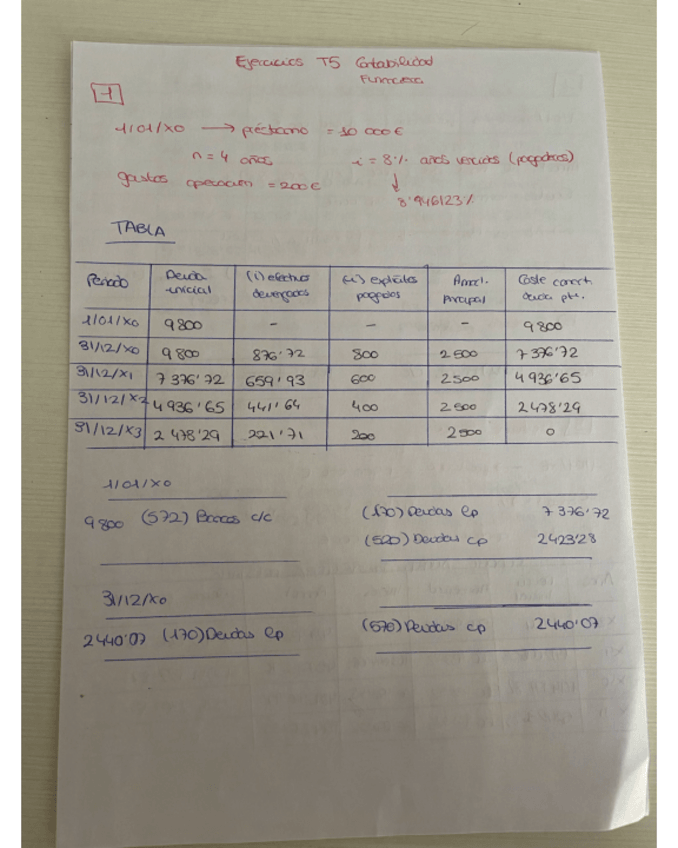 Ejercicios T5 Contabilidad
Financiera
1
1/01/X0 → préstamo = 10 000 €
n = 4 años i = 8% años vencidos (pagaderos)
gastos operación = 200 € ↓
8'946123%
TABLA
Periodo Deuda inicial (i) efectivos devengados (i) explícitos pagados Amort. Principal Coste amort. deuda pte.
1/01/X0 9800 - - - 9800
31/12/X0 9800 876'72 800 2500 7376'72
31/12/X1 7376'72 659'93 600 2500 4936'65
31/12/X2 4936'65 441'64 400 2500 2478'29
31/12/X3 2478'29 221'71 200 2500 0
1/01/X0
9800 (572) Bancos c/c (170) Deudas lp 7376'72
(520) Deudas cp 2423'28
31/12/X0
2440'07 (170) Deudas lp (570) Deudas cp 2440'07